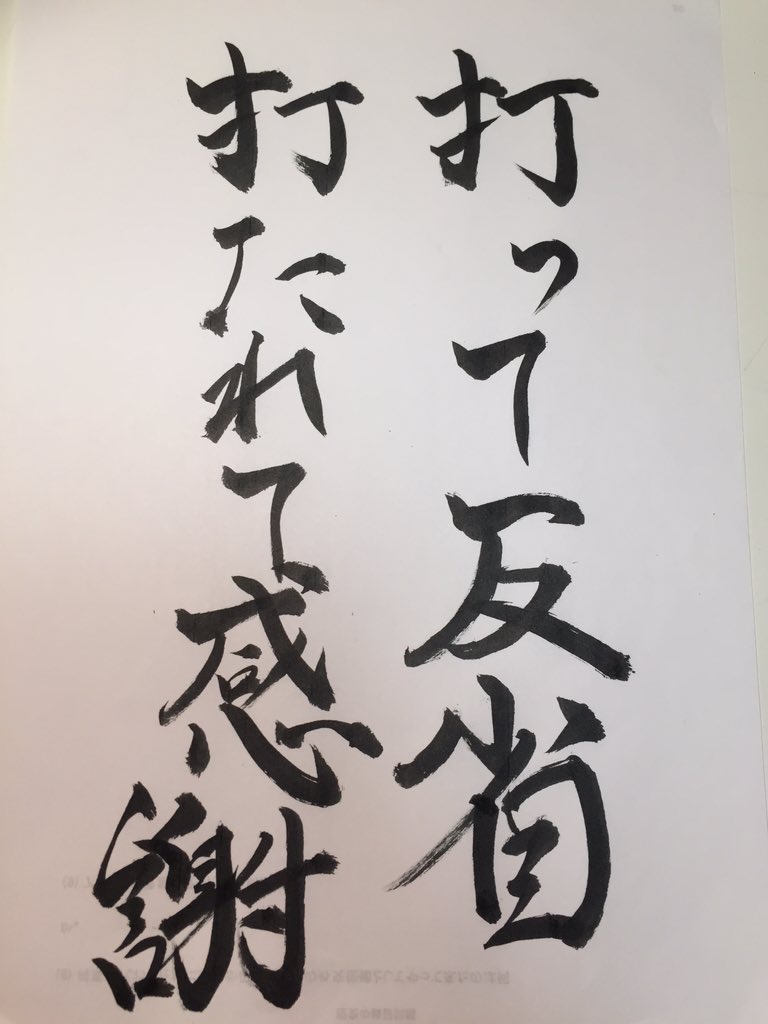 打って反省
打たれて感謝